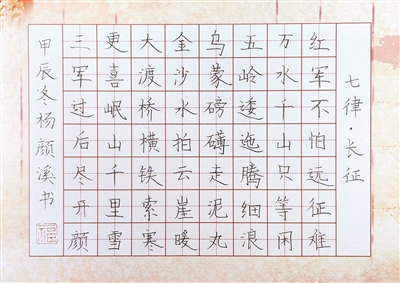 七律·长征
红军不怕远征难
万水千山只等闲
五岭逶迤腾细浪
乌蒙磅礴走泥丸
金沙水拍云崖暖
大渡桥横铁索寒
更喜岷山千里雪
三军过后尽开颜
甲辰冬杨颜溪书